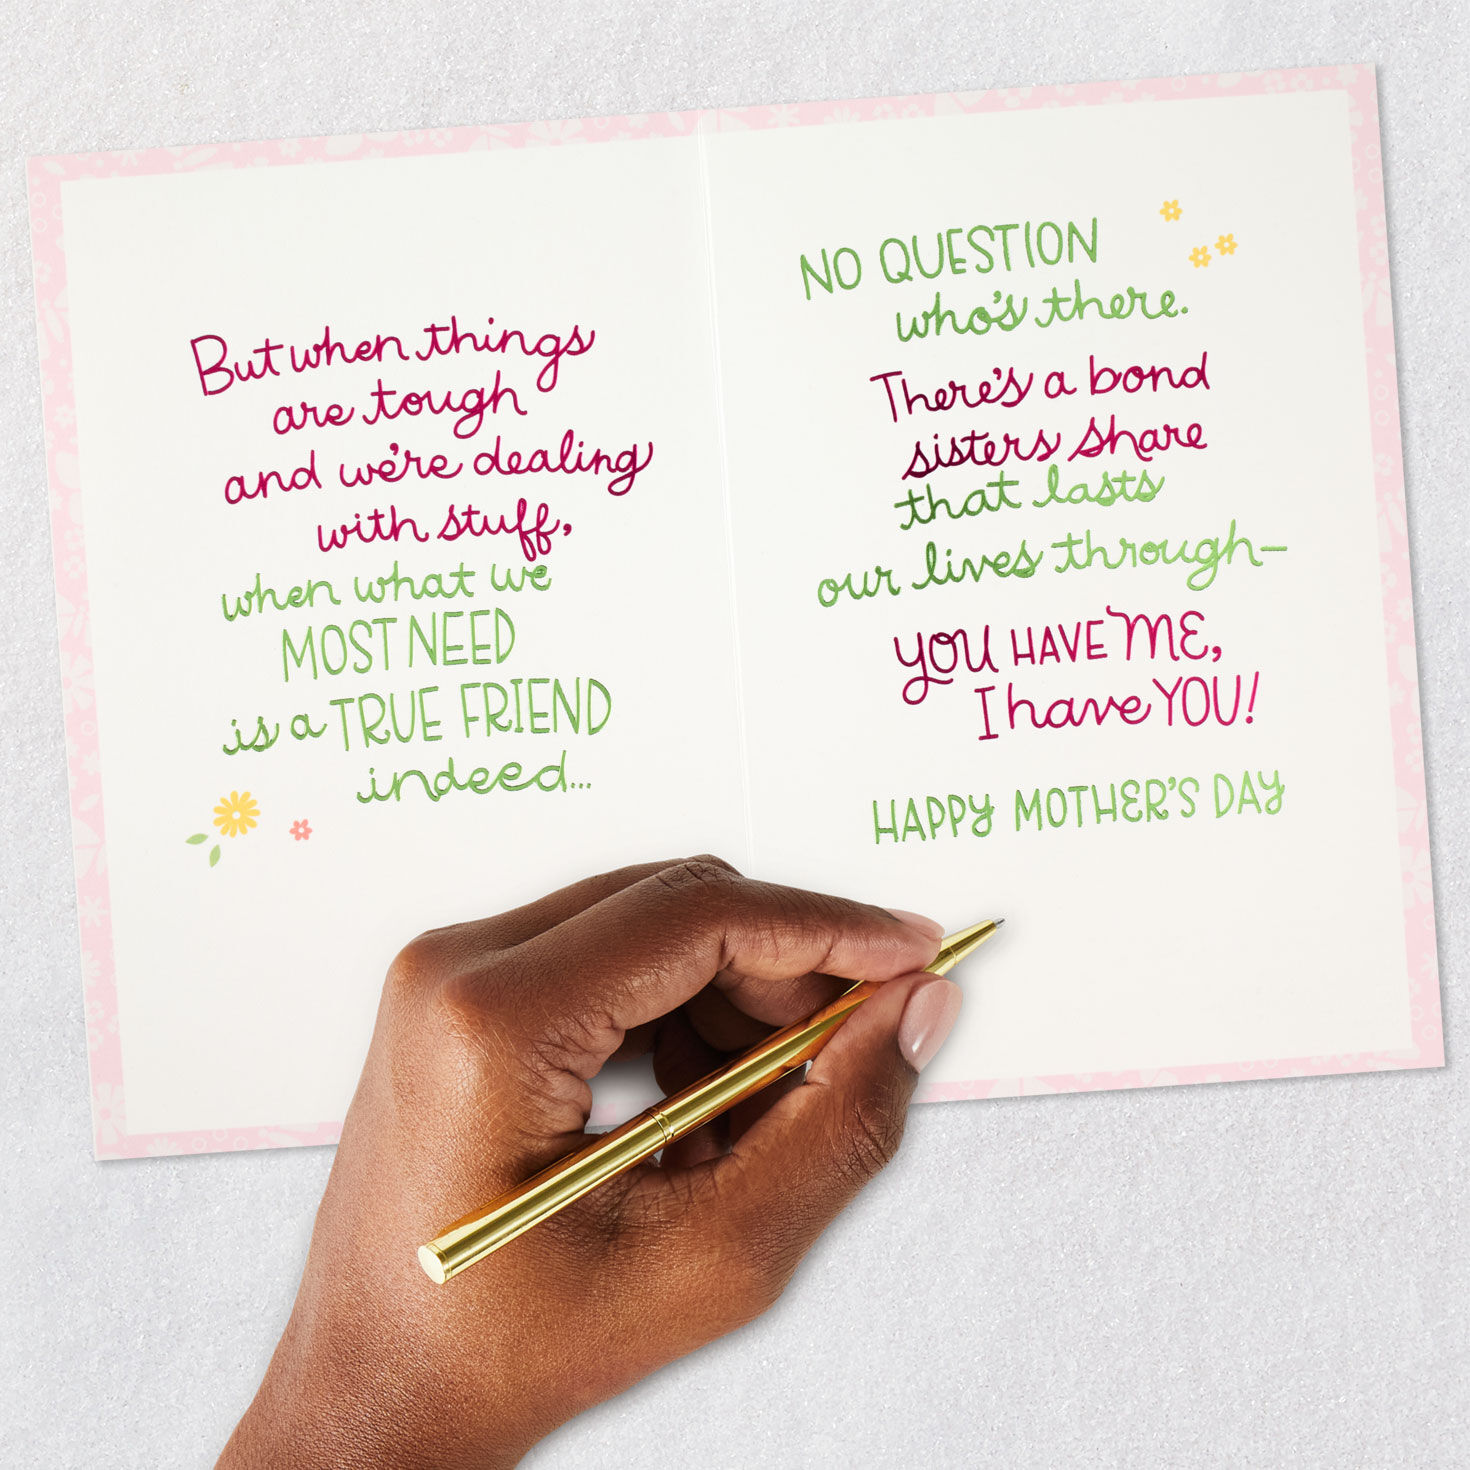 But when things
are tough
and we're dealing
with stuff,
when what we
MOST NEED
is a TRUE FRIEND
indeed...
NO QUESTION
who's there.
There's a bond
sisters share
that lasts
our lives through—
YOU HAVE ME,
I have YOU!
HAPPY MOTHER'S DAY